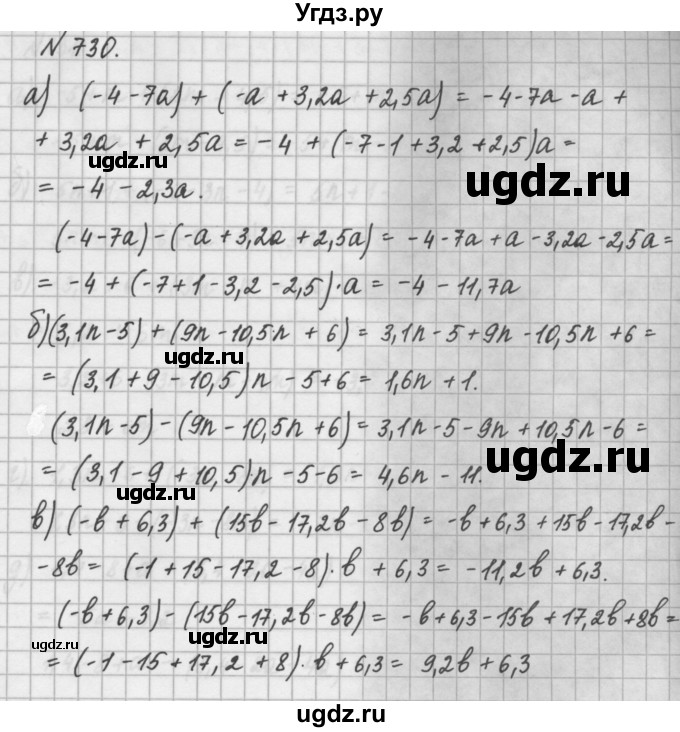 Угдз.ру
N 730.
а) (-4-7a) + (-a + 3,2a + 2,5a) = -4-7a - a +
+ 3,2a + 2,5a = -4 + (-7-1+3,2+2,5)a =
ugdz.ru
ugdz.ru
= -4 - 2,3a.
(-4-7a) - (-a + 3,2a + 2,5a) = -4-7a + a - 3,2a - 2,5a =
= -4 + (-7+1-3,2-2,5)·a = -4 - 11,7a
б) (3,1n-5) + (9n - 10,5n + 6) = 3,1n - 5 + 9n - 10,5n + 6 =
ugdz.ru
= (3,1 + 9 - 10,5)n - 5 + 6 = 1,6n + 1.
(3,1n-5) - (9n - 10,5n + 6) = 3,1n - 5 - 9n + 10,5n - 6 =
ugdz.ru
= (3,1 - 9 + 10,5)n - 5 - 6 = 4,6n - 11.
ugdz.ru
в) (-b + 6,3) + (15b - 17,2b - 8b) = -b + 6,3 + 15b - 17,2b -
- 8b = (-1 + 15 - 17,2 - 8)·b + 6,3 = -11,2b + 6,3.
(-b + 6,3) - (15b - 17,2b - 8b) = -b + 6,3 - 15b + 17,2b + 8b =
ugdz.ru
ugdz.ru
= (-1 - 15 + 17,2 + 8)·b + 6,3 = 9,2b + 6,3
ugdz.ru